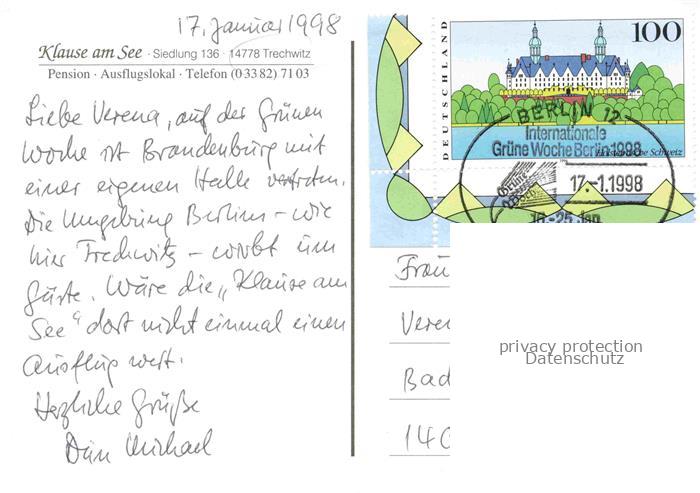 17. Januar 1998
Klause am See · Siedlung 136 · 14778 Trechwitz
Pension · Ausflugslokal · Telefon (0 33 82) 71 03
Liebe Verena, auf der Grünen
Woche ist Brandenburg mit
einer eigenen Halle vertreten.
Die Umgebung Berlins – wie
hier Trechwitz – wirbt um
Gäste. Wäre die „Klause am
See“ dort nicht einmal einen
Ausflug wert.
Herzliche Grüße
Dein Michael
DEUTSCHLAND
100
BERLIN 12
Internationale
Grüne Woche Berlin 1998
Schweiz
17.-1.1998
16.-25. Jan.
Frau
Veren
Bad
140
privacy protection
Datenschutz